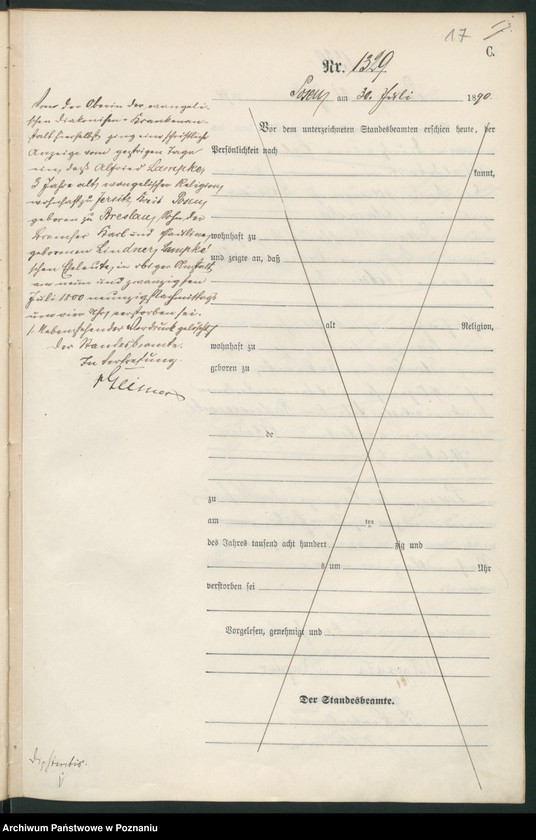 17
C.
Nr. 1329.
Posen am 30. Juli 1890.
Von der Oberin der evangeli-
schen Diakonissen-Krankenan-
stalt hierselbst ging eine schriftliche
Anzeige vom gestrigen Tage
ein, daß Alfried Lampke,
3 Jahre alt, evangelischer Religion,
wohnhaft zu Jersitz, Kreis Posen,
geboren zu Breslau, Sohn der
Karl und Pauline,
geborenen Lindner, Lampke'
schen Eheleute, in obiger Anstalt
am neun und zwanzigsten
Juli 1800 neunzig Nachmittags
um vier Uhr, verstorben sei.
Nebenstehender Vordruck gelöscht
Der Standesbeamte.
In Vertretung
Vor dem unterzeichneten Standesbeamten erschien heute, der
Persönlichkeit nach
kannt,
wohnhaft zu
und zeigte an, daß
alt Religion,
wohnhaft zu
geboren zu
de
zu
am ten
des Jahres tausend acht hundert zig und
s um Uhr
verstorben sei
Vorgelesen, genehmigt und
Der Standesbeamte.
Archiwum Państwowe w Poznaniu